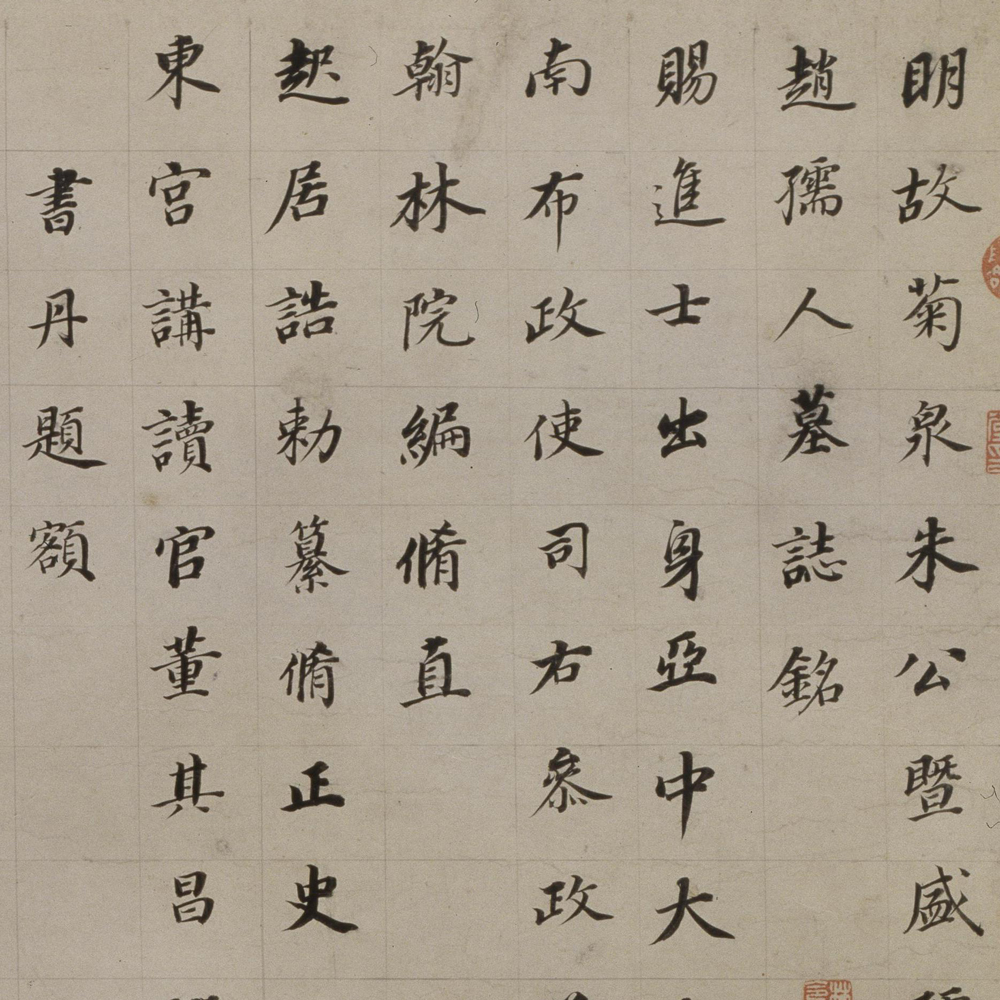 明故菊泉朱公暨盛
趙孺人墓誌銘
賜進士出身亞中大
南布政使司右叅政
翰林院編脩直
起居誥勅纂脩正史
東宮講讀官董其昌
書丹題額